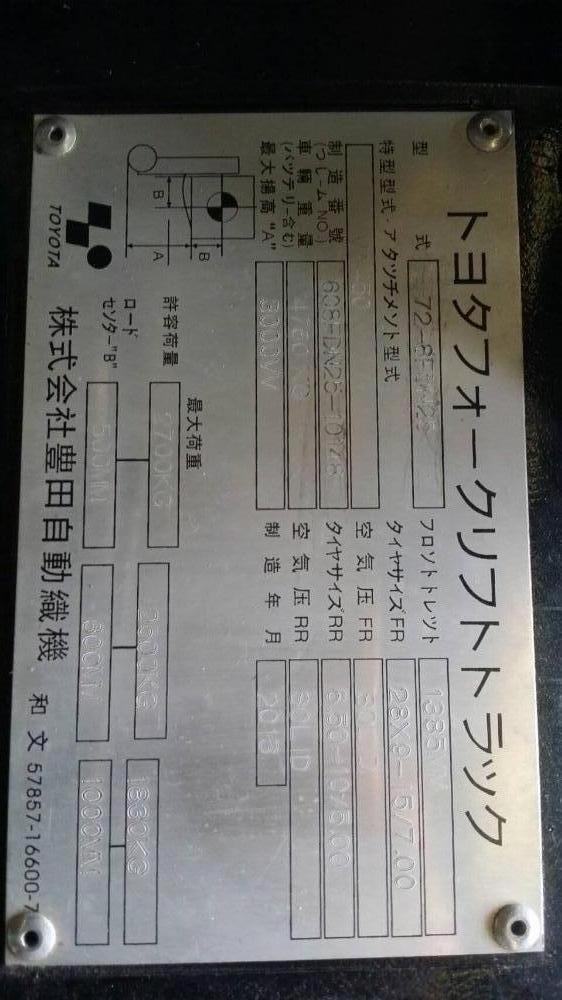 トヨタフォークリフトトラック
型 式
フロソトトレツト
特型型式.アタツチメソト型式
タイヤサイズFR 28X9-15/7.00
空気圧 FR
制造番號
(つしームNO.)
タイヤサイズRR 6.50-10/5.00
車輛重量
(バツテリー含む)
空気圧 RR SOLID
最大揚高"A" 3000MM
制造年月
B
A
B
最大荷重
許容荷量 2700KG
ロード
セソター"B" 500MM 600MM 1000MM
TOYOTA
株式会社豊田自動織機 和文 57857-16600-7